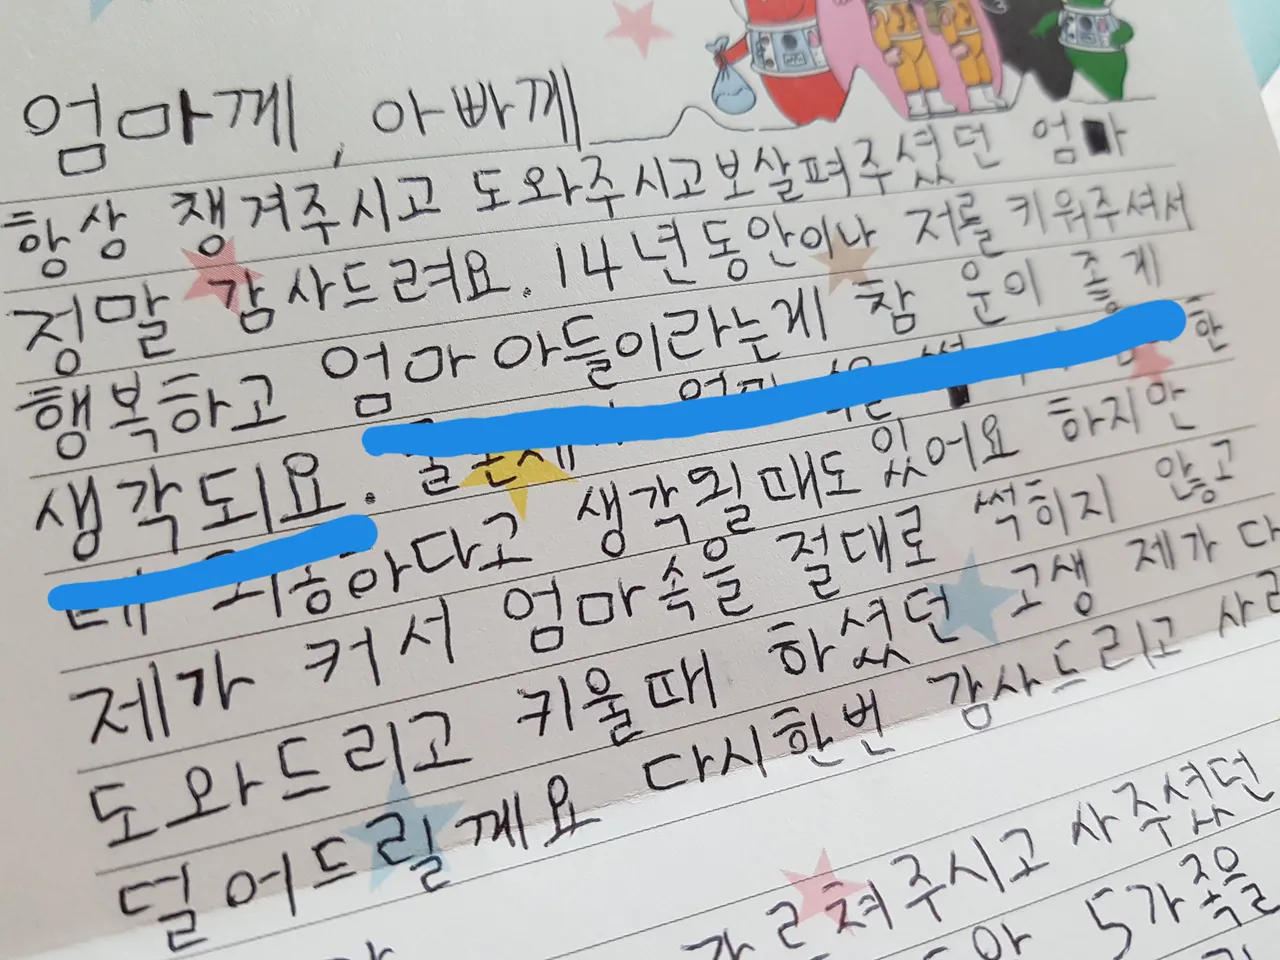 엄마께, 아빠께
항상 챙겨주시고 도와주시고보살펴주셨던 엄마
정말 감사드려요. 14년동안이나 저를 키워주셔서
행복하고 엄마아들이라는게 참 운이 좋게
생각되요.
하다고 생각될때도 있어요 하지만
제가 커서 엄마속을 절대로 썩히지 않고
도와드리고 키울때 하셨던 고생 제가 다
덜어드릴께요 다시한번 감사드리고
가르쳐주시고 사주셨던
5가족을